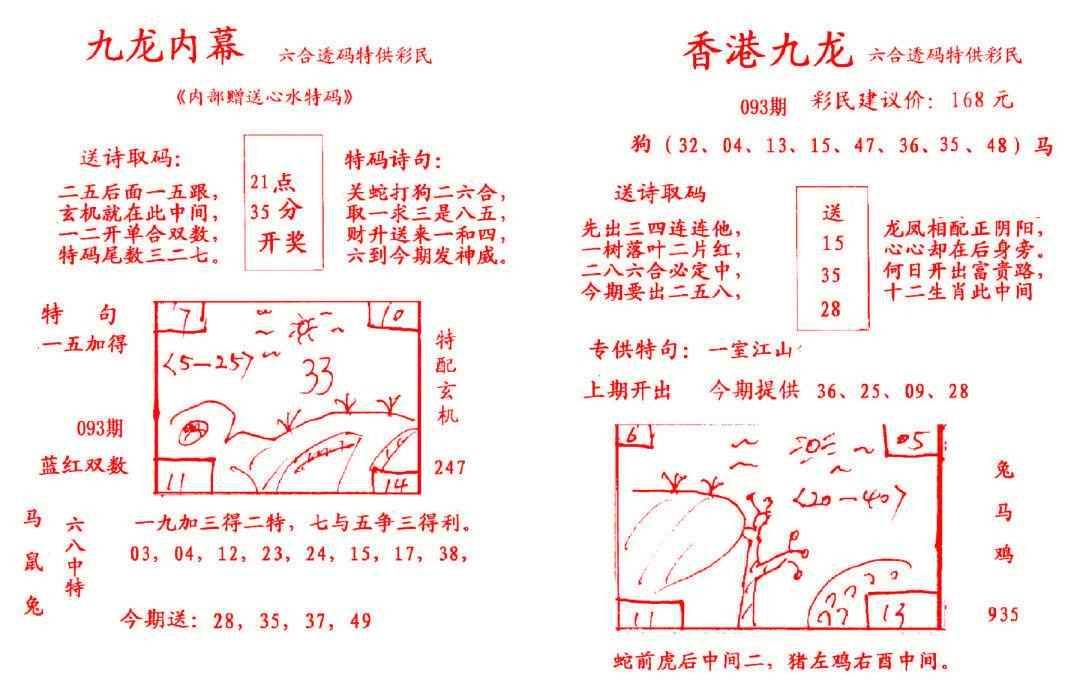 九龙内幕 六合透码特供彩民
《内部赠送心水特码》
送诗取码：
二五后面一五跟，
玄机就在此中间，
一二开单合双数，
特码尾数三二七。
21点
35分
开奖
特码诗句：
关蛇打狗二六合，
取一求三是八五，
财升送来一和四，
六到今期发神威。
特句
一五加得
093期
蓝红双数
7
10
〈5—25〉
33
11
14
特配玄机
247
马鼠兔
六八中特
一九加三得二特，七与五争三得利。
03，04，12，23，24，15，17，38，
今期送：28，35，37，49
香港九龙 六合透码特供彩民
093期 彩民建议价：168元
狗（32、04、13、15、47、36、35、48）马
送诗取码
先出三四连连他，
一树落叶二片红，
二八六合必定中，
今期要出二五八，
送
15
35
28
龙凤相配正阴阳，
心心却在后身旁。
何日开出富贵路，
十二生肖此中间
专供特句：一室江山
上期开出 今期提供 36、25、09、28
6
05
〈20—40〉
11
13
兔
马
鸡
935
蛇前虎后中间二，猪左鸡右酉中间。